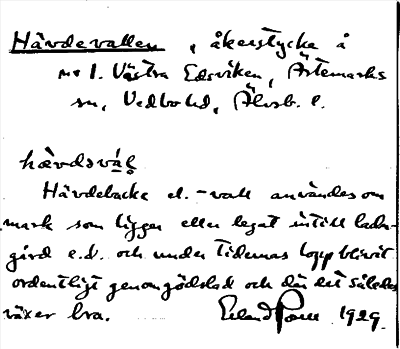 Hävdevallen, åkerstycke å
nr 1. Västra Edsviken, Ärtemarks
sn, Vedbo hd, Älvsb. l.
hævdsvál
Hävdebacke el. -vall användes om
mark som ligger eller legat intill ladu-
gård e.d. och under tidernas lopp blivit
ordentligt genomgödslad och där det således
växer bra. Erland 1929.